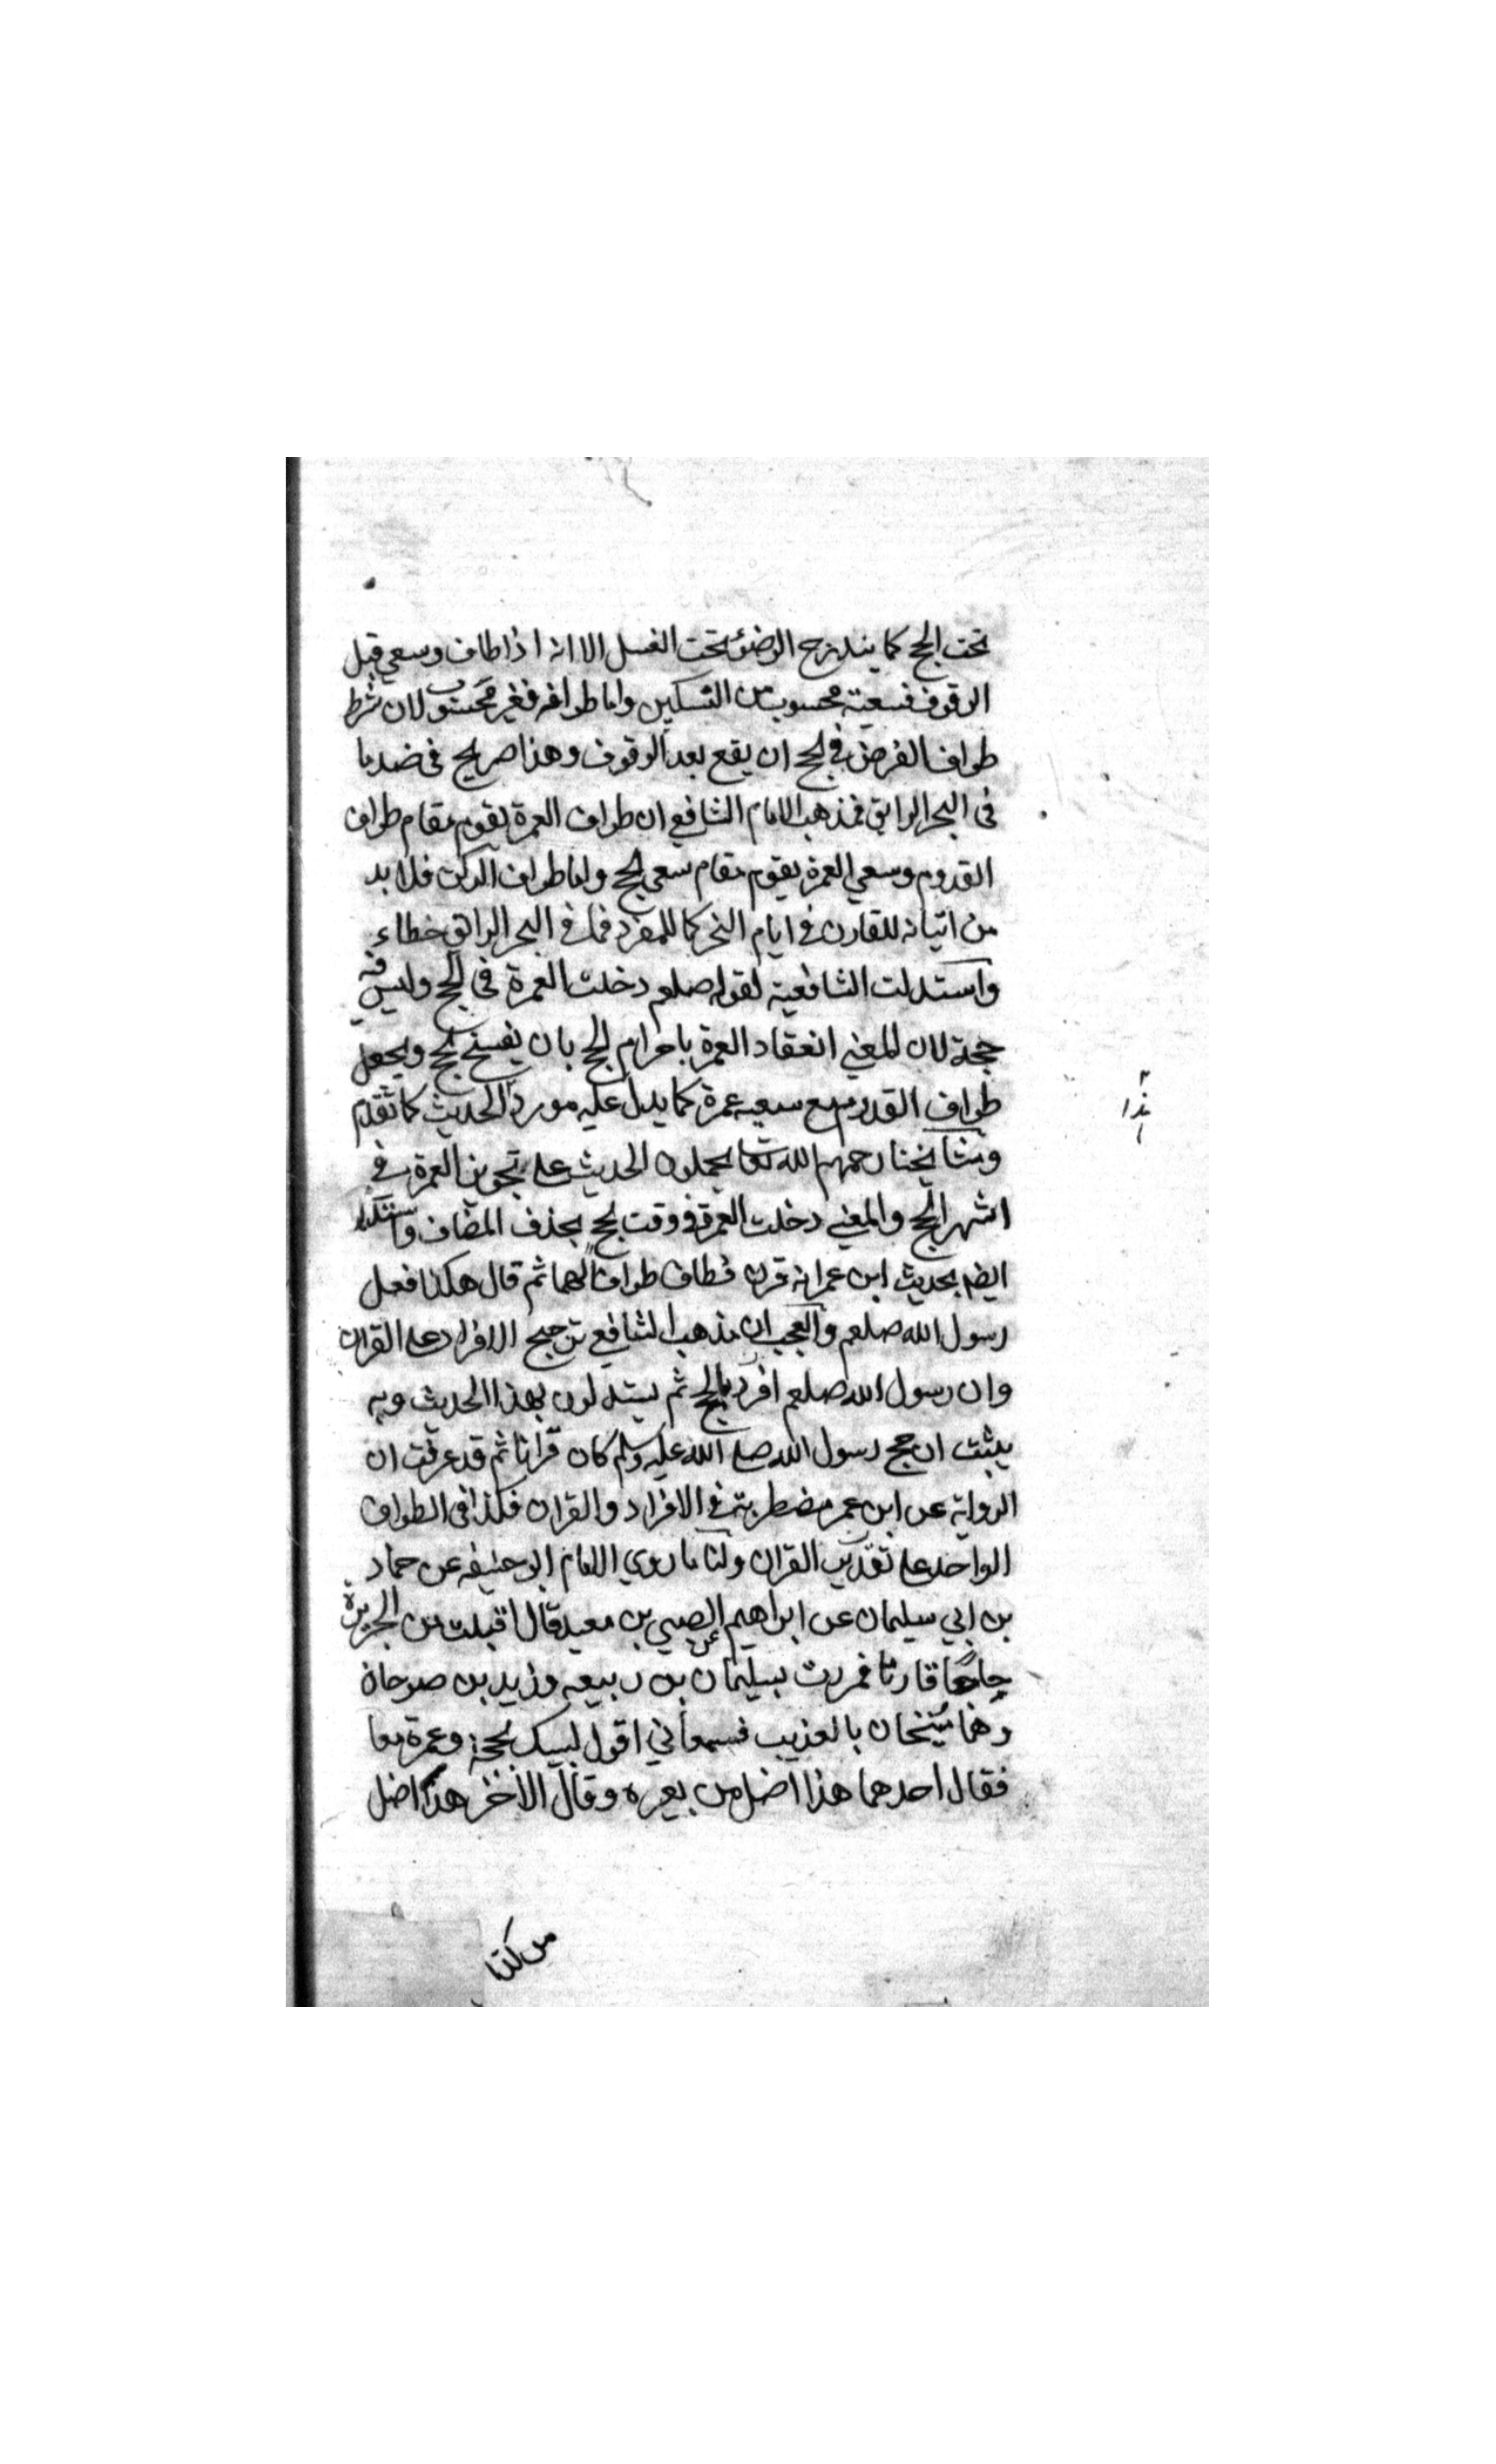 تحت الحج كما يندرج الوضوء تحت الغسل الا انه اذا طاف وسعي قبل
الوقوف فسعيته محسوب من النسكين واما طوافه فغير محسوب لان شرط
طواف الفرض في الحج ان يقع بعد الوقوف وهذا صريح في ضد ما
في البحر الرايق فمذهب الامام الشافعي ان طواف العمرة يقوم مقام طواف
القدوم وسعي العمرة يقوم مقام سعي الحج واما طواف الركن فلا بد
من اتيانه للقارن في ايام النحر كما للمفرد فما في البحر الرايق خطاء
واستدلت الشافعية لقوله صلعم دخلت العمرة في الحج وليس فيه
حجة لان المعني انعقاد العمرة باحرام الحج بان يفسخ الحج ويجعل
طواف القدوم مع سعيه عمرة كما يدل عليه مورد الحديث كما تقدم
ومشايخنا رحمهم الله تعا يحملون الحديث علي تجويز العمرة في
اشهر الحج والمعني دخلت العمرة في وقت الحج بحذف المضاف واستدلوا
ايضا بحديث ابن عمر انه قرن فطاف طوافا لهما ثم قال هكذا فعل
رسول الله صلعم والعجب ان مذهب الشافعي ترجيح الافراد علي القران
وان رسول الله صلعم افرد بالحج ثم يستدلون بهذا الحديث وبه
يثبت ان حج رسول الله صلي الله عليه وسلم كان قرانا ثم قد عرفت ان
الرواية عن ابن عمر مضطربة في الافراد والقران فكذا في الطواف
الواحد علي تقدير القران ولنا ما روي الامام ابو حنيفه عن حماد
بن ابي سليمان عن ابراهيم عن الصبي بن معبد قال اقبلت من الجزيرة
حاجا قارنا فمررت بسليمان بن ربيعه وزيد بن صوحان
وهما شيخان بالعذيب فسمعاني اقول لبيك بحجة وعمرة معا
فقال احدهما هذا اضل من بعيره وقال الاخر هذا اضل
من كذا